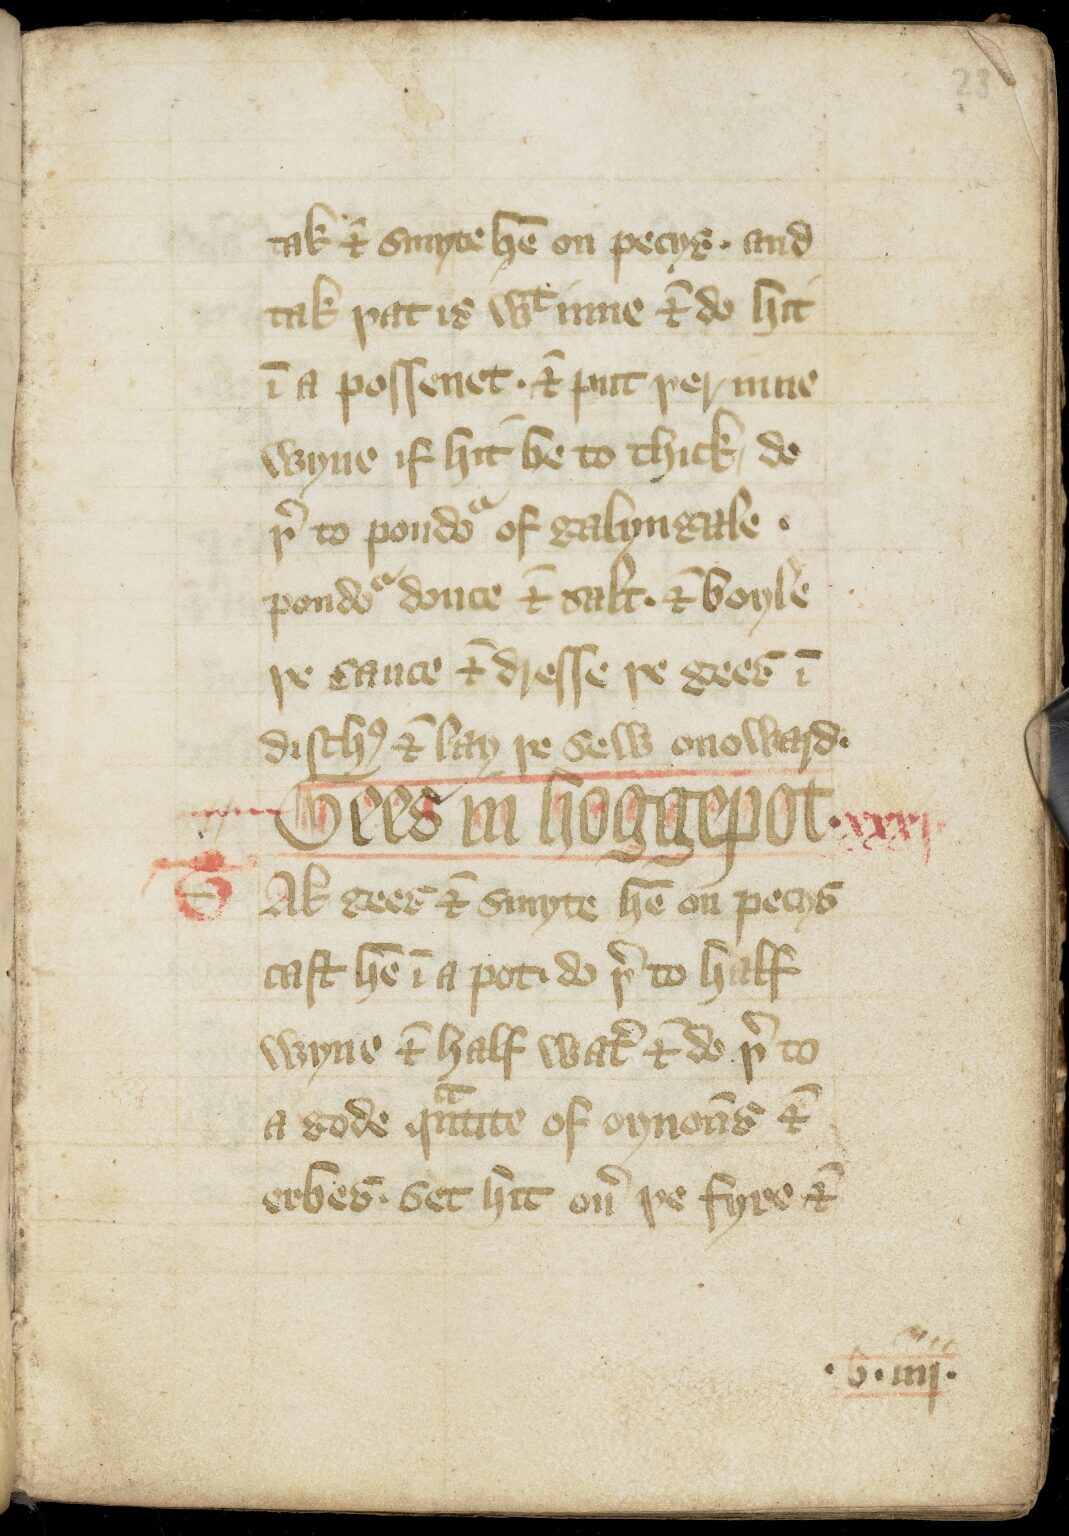 28
tak & smyte hē on pecys. and
tak þat is wᵗ inne & do hit
ī a possenet. & put þer inne
wyne if hit be to thick, do
þ̉ to poudoᵃ of galyngale .
poudoᵃ douce & salt. & boyle
þe sauce & dresse þe gees ī
disch⁹ & lay þe sew onoward.
Gees in hoggepot. xxxj
Tak gees & smyte hē on pecys
cast hē ī a pot. do þ̉ to half
wyne & half wat̉ & do þ̉ to
a gode qᵃntite of oynoūs &
erbes. Set hit oủ þe fyre &
.b.iiij.